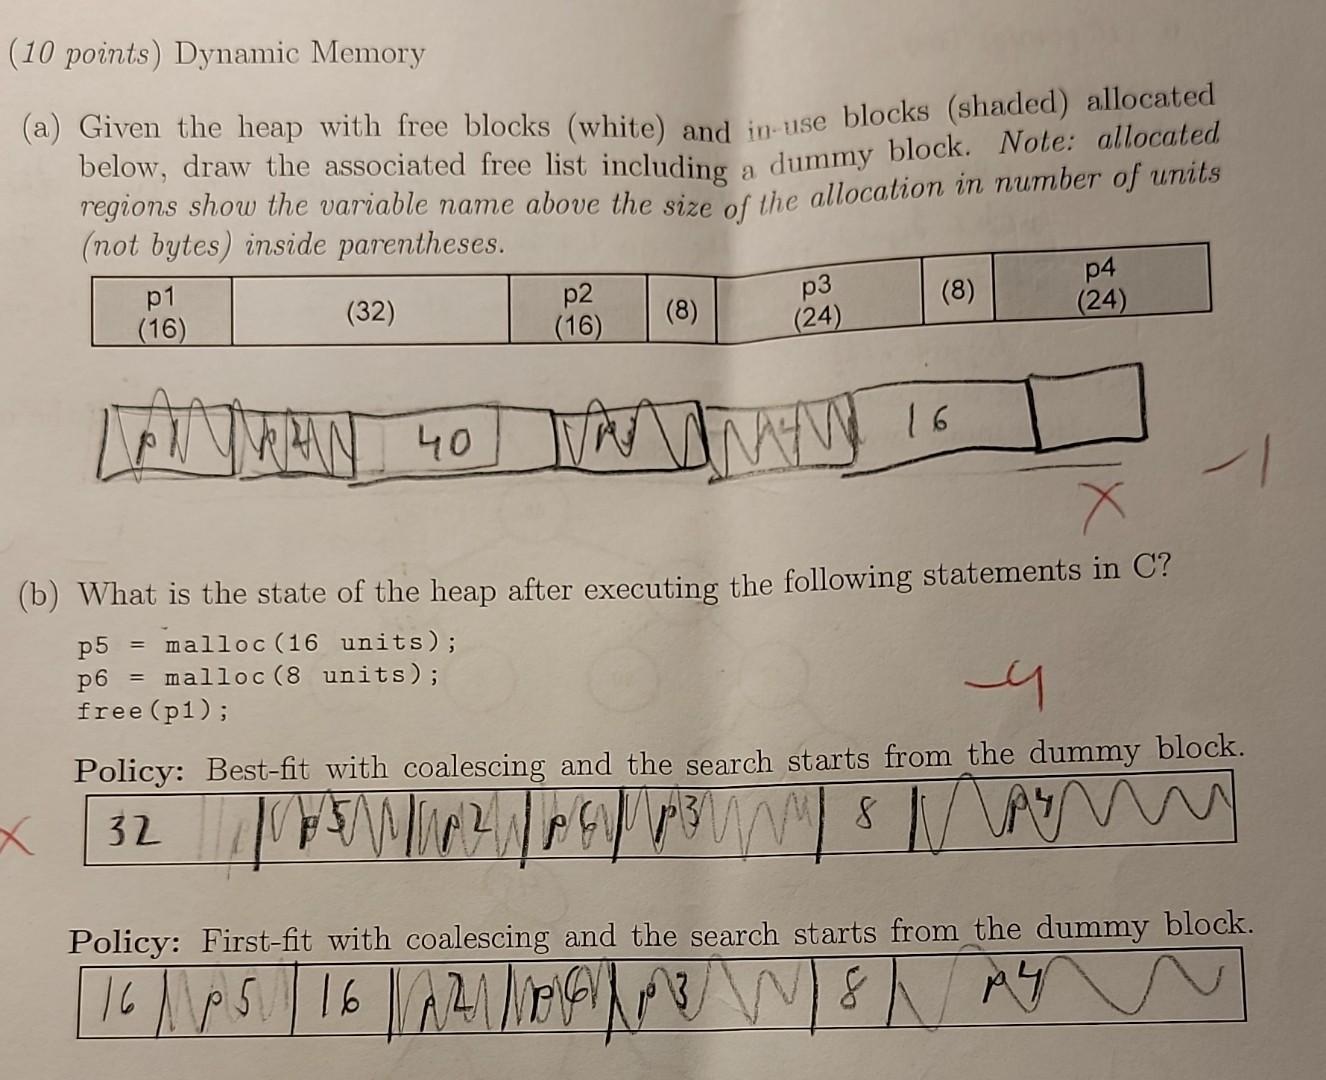 (10 points) Dynamic Memory
(a) Given the heap with free blocks (white) and in-use blocks (shaded) allocated
below, draw the associated free list including a dummy block. Note: allocated
regions show the variable name above the size of the allocation in number of units
(not bytes) inside parentheses.
p1 (16) (32) p2 (16) (8) p3 (24) (8) p4 (24)
p1 p2 40 p3 p4 16
X -1
(b) What is the state of the heap after executing the following statements in C?
p5 = malloc(16 units);
p6 = malloc(8 units);
free(p1);
-4
Policy: Best-fit with coalescing and the search starts from the dummy block.
X 32 p5 p2 p6 p3 8 p4
Policy: First-fit with coalescing and the search starts from the dummy block.
16 p5 16 p2 p6 p3 8 p4